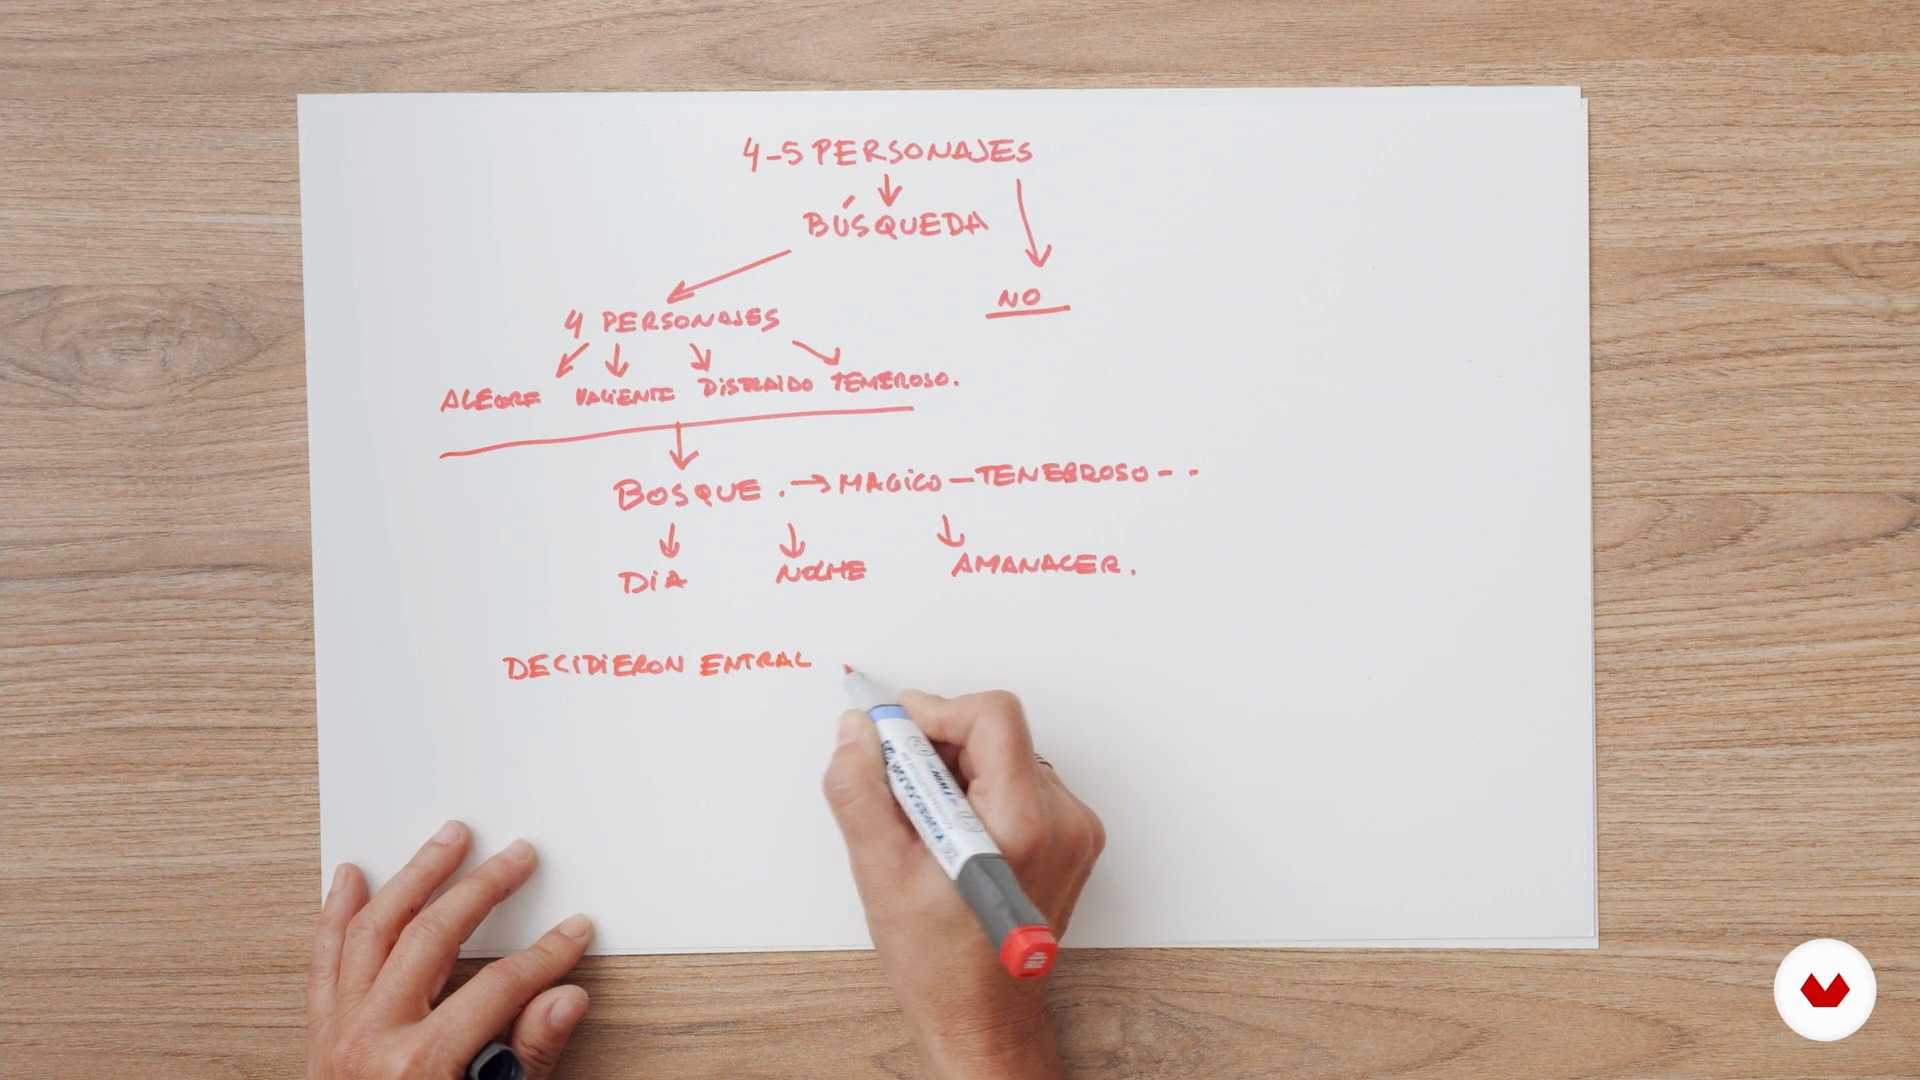 4-5 PERSONAJES
BÚSQUEDA
NO
4 PERSONAJES
ALEGRE VALIENTE DISTRAIDO TEMEROSO.
BOSQUE . → MAGICO - TENEBROSO - -
DIA NOCHE AMANACER.
DECIDIERON ENTRAL